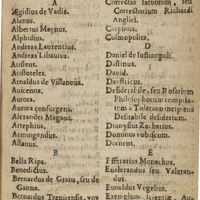 A
Ægidius de Vadis.
Alanus.
Albertus Magnus.
Alphidius.
Andreas Laurentius.
Andreas Libauius.
Arisleus.
Aristoteles.
Arnaldus de Villanoua.
Auicenna.
Aurora.
Aurora consurgens.
Alexander Magnus.
Artephius.
Armingandus.
Astanus.
B
Bella Ripa.
Benedictus.
Bernardus de Graua, seu de
Ganna.
Bernardus Treuirensis, vov
Correctio fatuorum, seu
Correctorium Richardi
Anglici.
Cosmopolita.
D
Daniel de Iustinopoli.
Dastinus.
Dauid.
Dauticus.
Desiderabile, seu Rosarium
Philosophorum compila-
tum à Toletano inscriptum
Desirabile desiderium.
Dionysius Zacharius.
Dominus vobiscum.
Dorneus.
E
Efferarius Monachus.
Epistolarium
dus.
Euualdus Vogelius.
Exemplum scientiæ, Au-